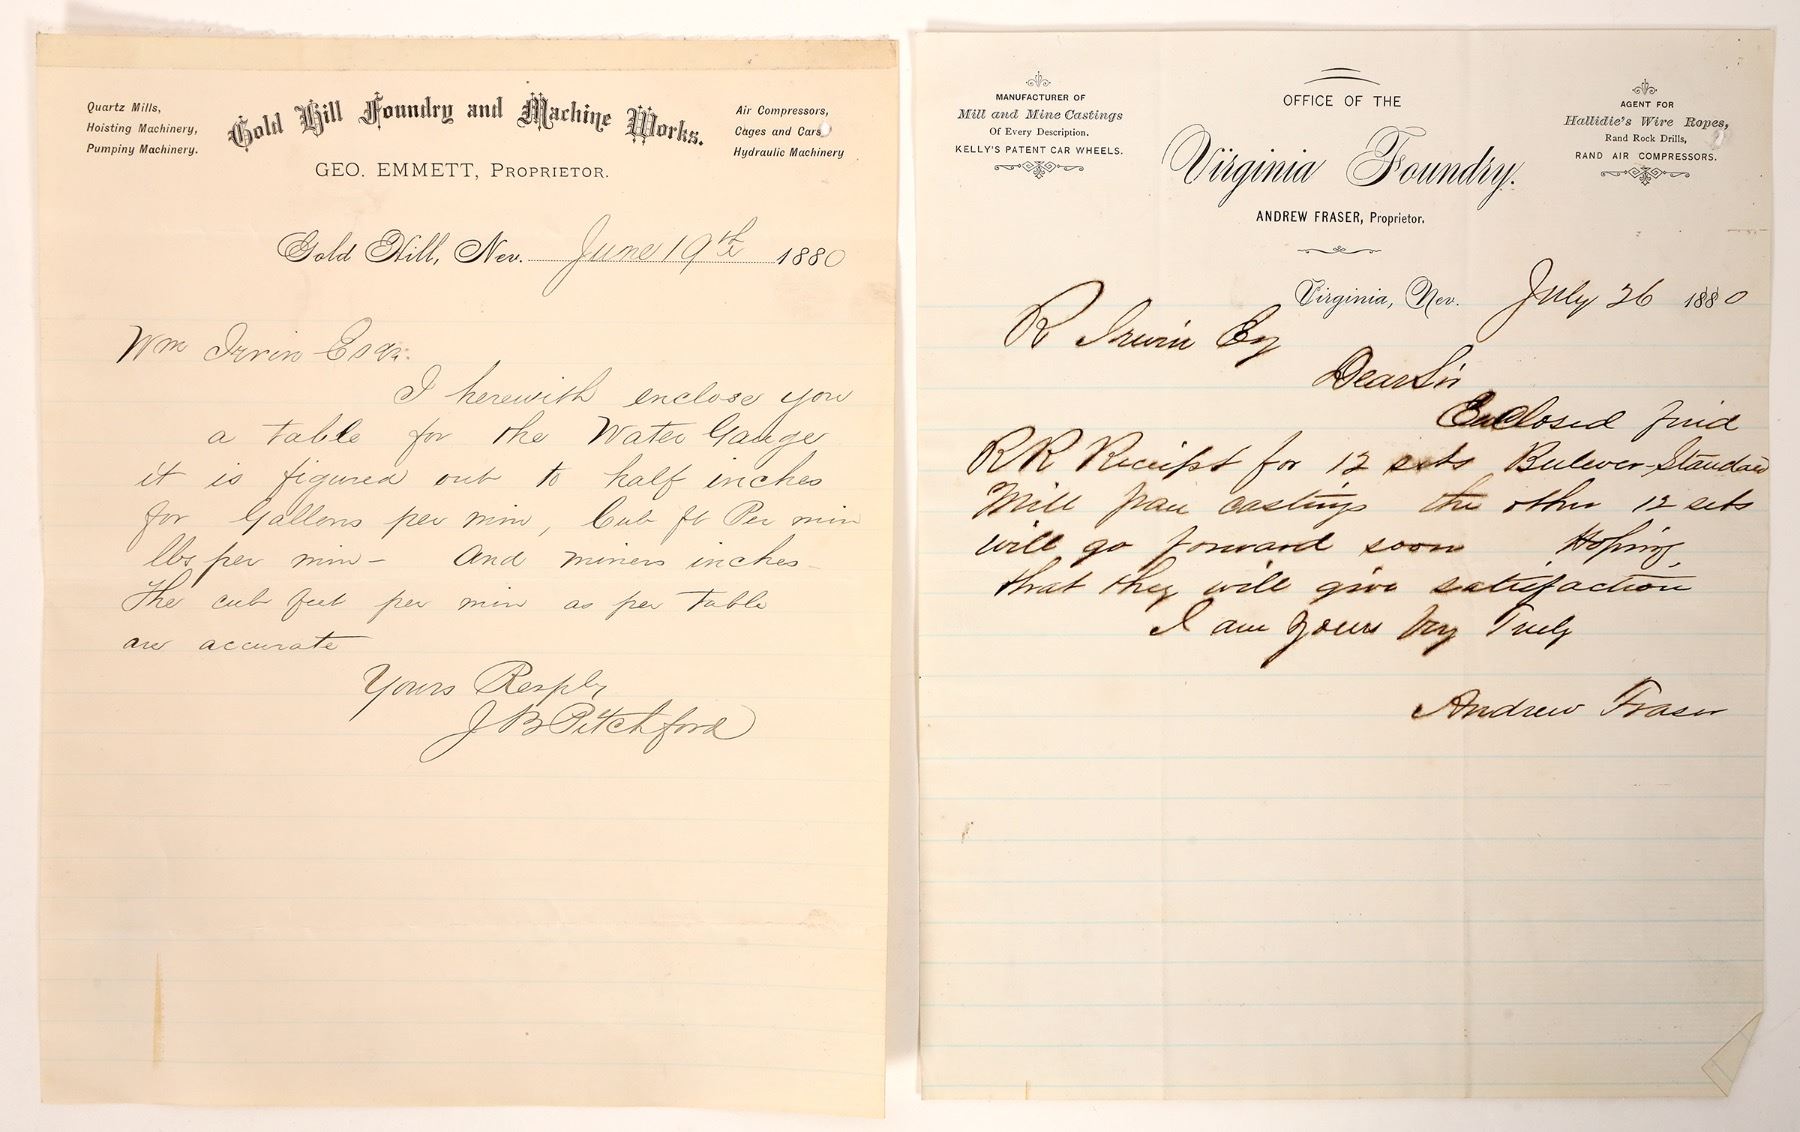 Quartz Mills,
Hoisting Machinery,
Pumpiny Machinery.
Gold Hill Foundry and Machine Works.
GEO. EMMETT, PROPRIETOR.
Air Compressors,
Cages and Cars
Hydraulic Machinery
Gold Hill, Nev. June 19th 1880
Wm Irvin Esqr.
I herewith enclose you
a table for the Water Gauge
it is figured out to half inches
for Gallons per min, Cub ft Per min
lbs per min - And miners inches -
The cub feet per min as per table
are accurate
Yours Resply
J B Pitchford
MANUFACTURER OF
Mill and Mine Castings
Of Every Description.
KELLY'S PATENT CAR WHEELS.
OFFICE OF THE
Virginia Foundry.
ANDREW FRASER, Proprietor.
AGENT FOR
Hallidie's Wire Ropes,
Rand Rock Drills,
RAND AIR COMPRESSORS.
Virginia, Nev. July 26 1880
R Irwin Esq
Dear Sir
Enclosed find
RR Receipt for 12 sets Bulwer-Standard
Mill pan castings the other 12 sets
will go forward soon Hoping
that they will give satisfaction
I am yours Vry Truly
Andrew Fraser